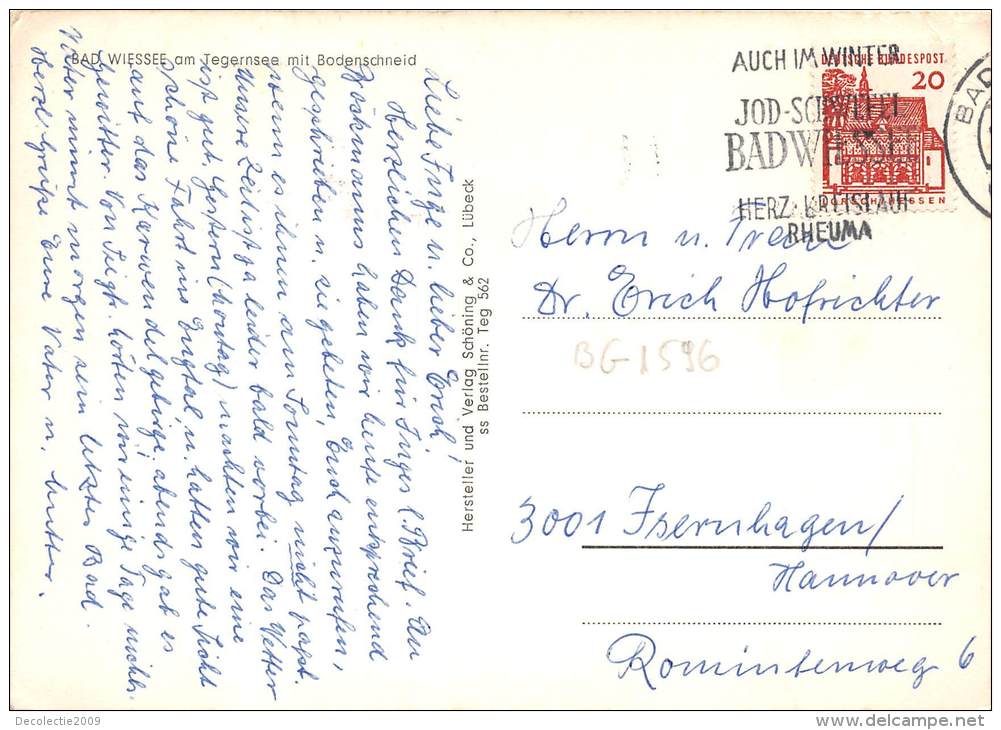 BAD WIESSEE am Tegernsee mit Bodenschneid
Liebe Inge u. lieber Erich!
Herzlichen Dank für Inges Brief. An
Böckmanns haben wir heute entsprechend
geschrieben u. sie gebeten, Euch anzurufen,
wenn es ihnen am Sonntag nicht passt.
Unsere Zeit ist ja leider bald vorbei. Das Wetter
ist gut. Gestern (Montag) machten wir eine
schöne Fahrt ins u. hatten gute Sicht
auf das Karwendelgebirge, abends gab es
Gewitter. Von hörten wir einige Tage nichts.
Vater nimmt morgen sein letztes Bad.
Herzl. Grüße Eure Vater u. Mutter.
Hersteller und Verlag Schöning & Co., Lübeck
ss Bestellnr. Teg 562
AUCH IM WINTER
JOD-SCHWEFEL
BAD WIESSEE
HERZ·KREISLAUF
RHEUMA
DEUTSCHE BUNDESPOST
20
LORSCH/HESSEN
BAD
Herrn u. Frau
Dr. Erich Hofrichter
BG 1596
3001 Isernhagen/
Hannover
Romintenweg 6
Decolectie2009
www.delcampe.net